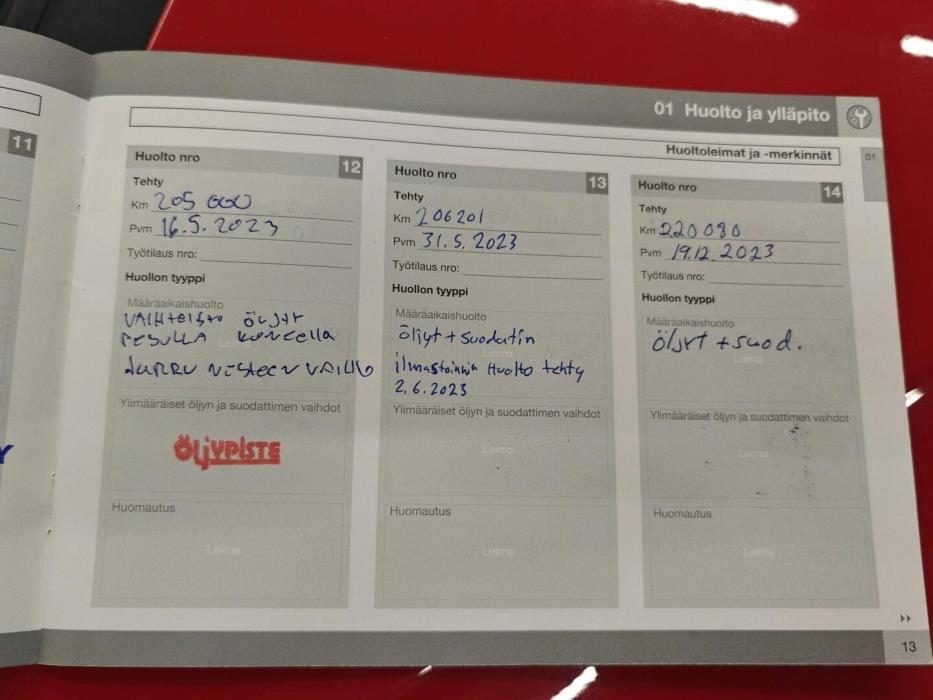 01 Huolto ja ylläpito
Huoltoleimat ja -merkinnät
01
11
Huolto nro 12
Tehty
Km 205 000
Pvm 16.5.2023
Työtilaus nro:
Huollon tyyppi
Määräaikaishuolto
VAIHTEISTO ÖLJYT
KONEELLA
JARRU NESTEEN VAIHTO
Ylimääräiset öljyn ja suodattimen vaihdot
ÖLJYPISTE
Huomautus
Leima
Huolto nro 13
Tehty
Km 206201
Pvm 31.5.2023
Työtilaus nro:
Huollon tyyppi
Määräaikaishuolto
öljyt + suodatin
Leima
ilmastoinnin Huolto tehty
2.6.2023
Ylimääräiset öljyn ja suodattimen vaihdot
Leima
Huomautus
Leima
Huolto nro 14
Tehty
Km 220080
Pvm 19.12.2023
Työtilaus nro:
Huollon tyyppi
Määräaikaishuolto
öljyt + suod.
Leima
Ylimääräiset öljyn ja suodattimen vaihdot
Leima
Huomautus
Leima
13